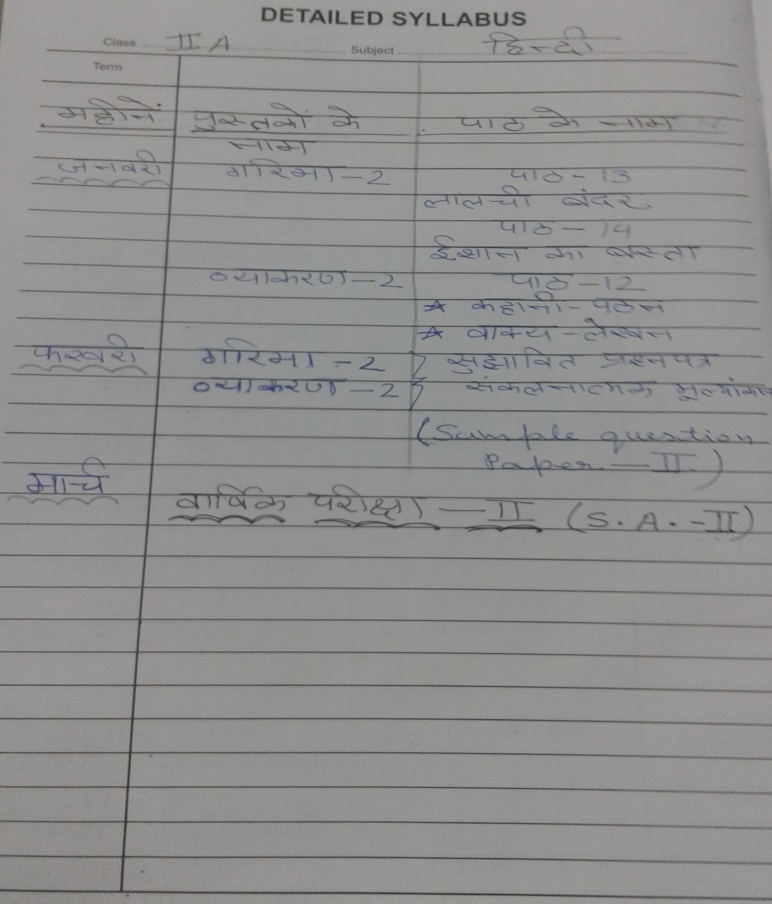 DETAILED SYLLABUS
Class II A Subject हिन्दी
Term
महीनें पुस्तकों के पाठ के नाम
नाम
जनवरी गरिमा-2 पाठ-13
लालची बंदर
पाठ-14
ईशान का बस्ता
व्याकरण-2 पाठ-12
* कहानी-पठन
* वाक्य-लेखन
फरवरी गरिमा-2 } सुझावित प्रश्नपत्र
व्याकरण-2 } संकलनात्मक मूल्यांकन
(Sample question
Paper-II)
मार्च
वार्षिक परीक्षा-II (S.A.-II)